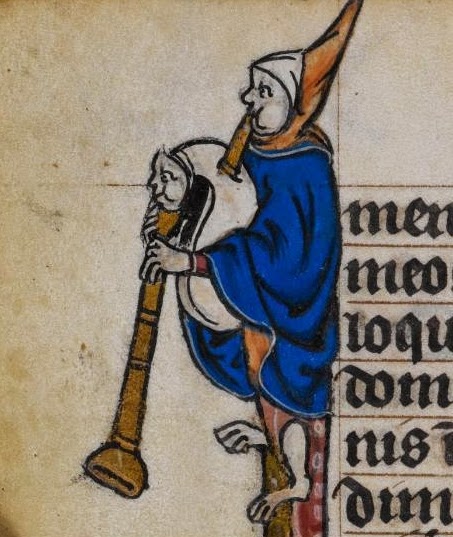 men
meos
loqu
dom
nis
dim